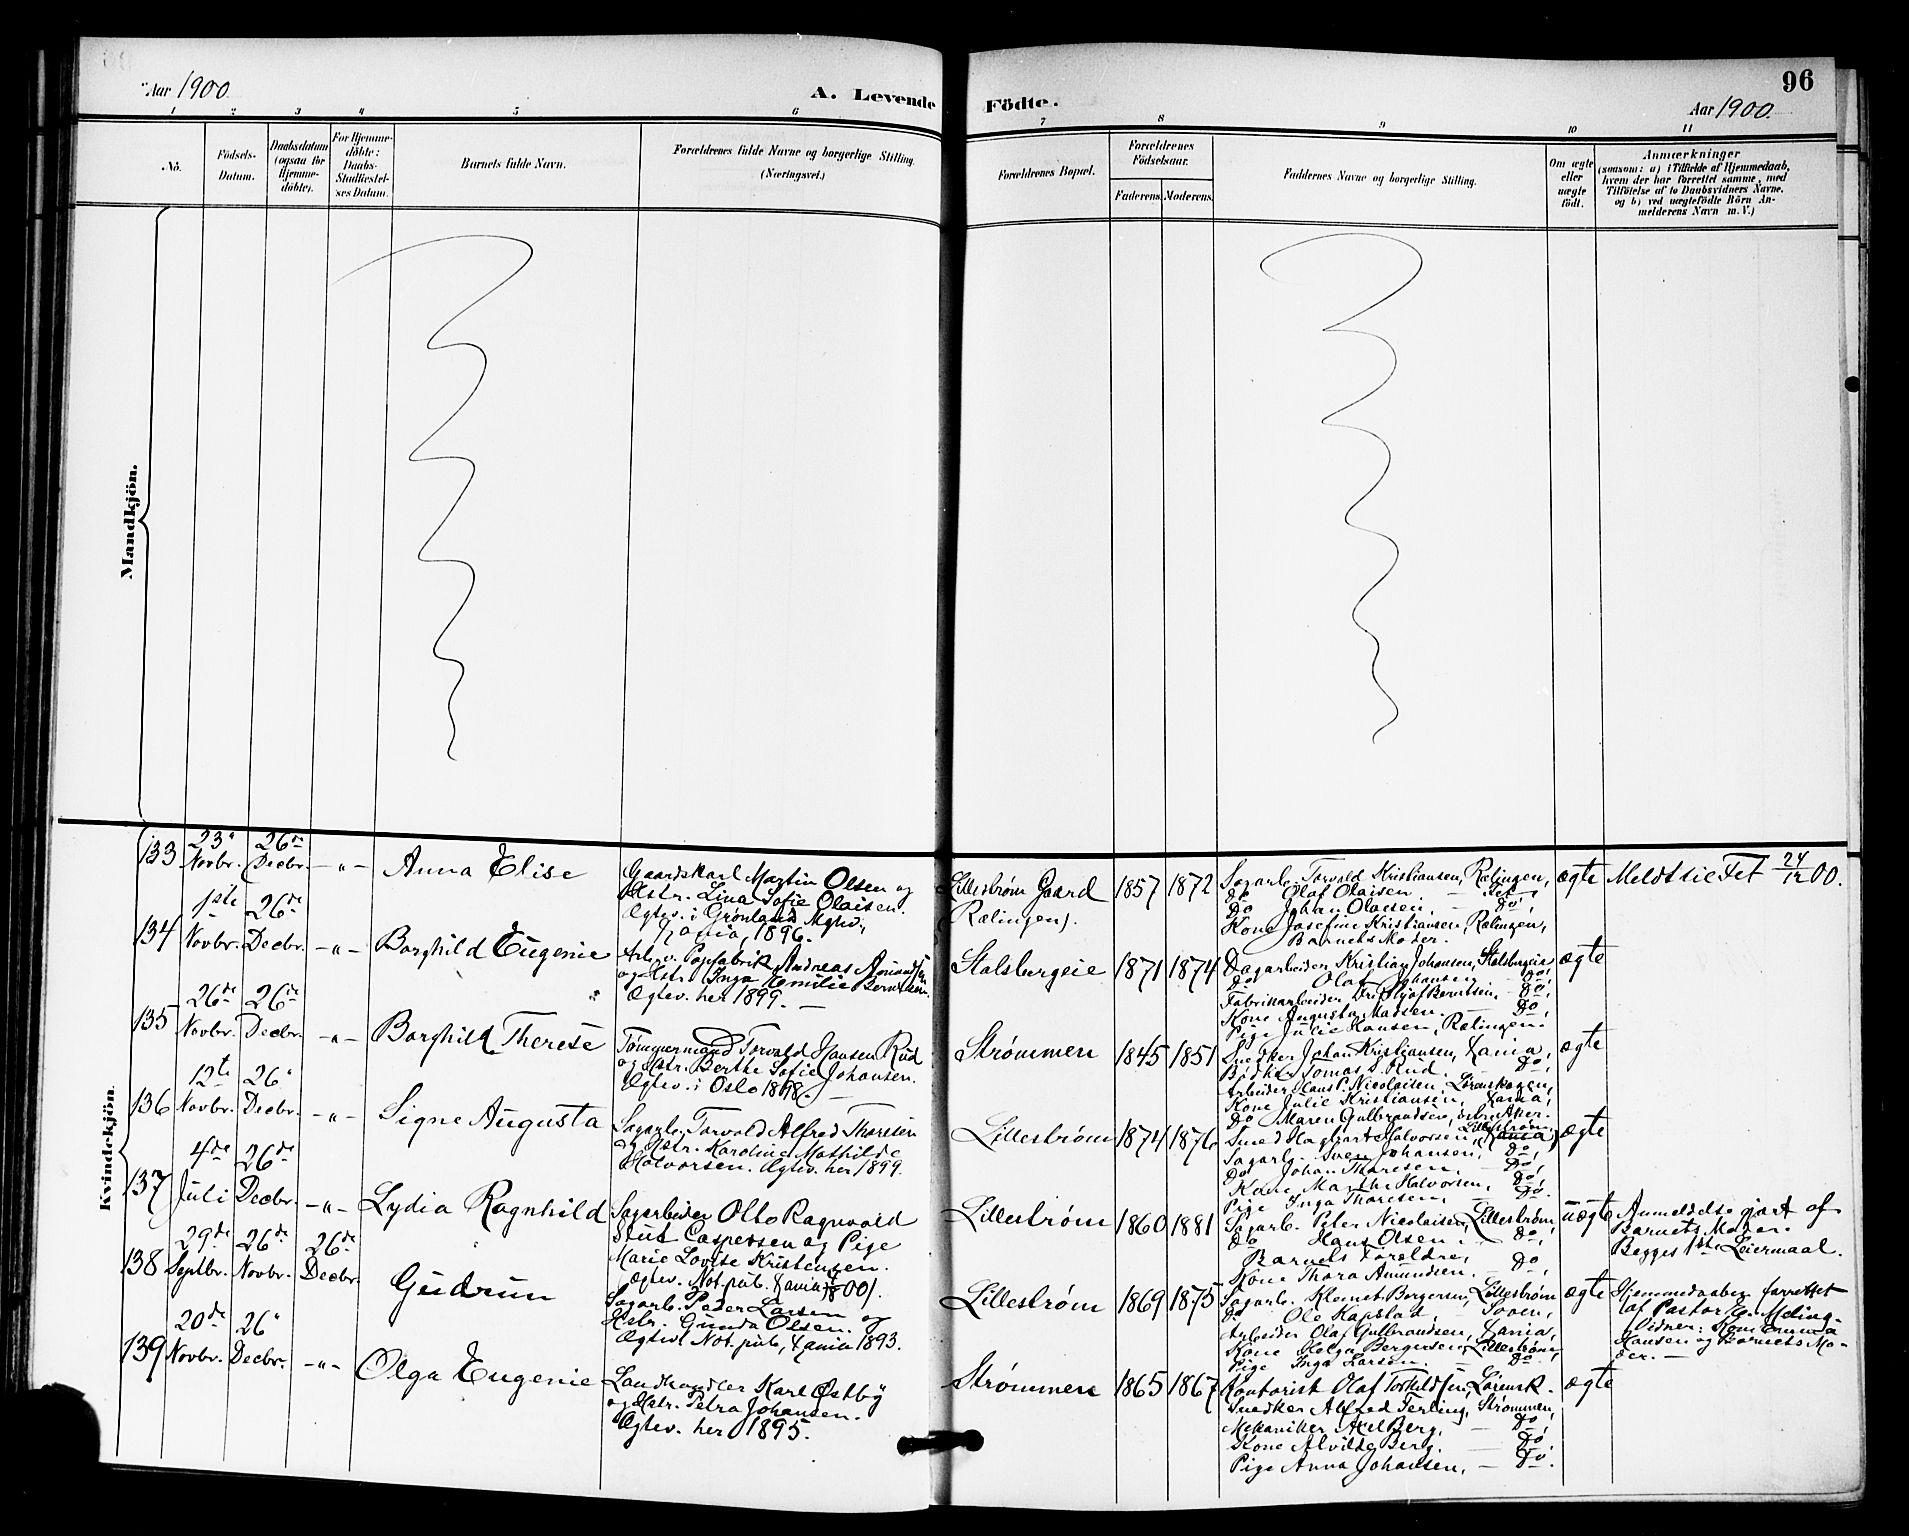 Aar 1900
A. Levende
Födte.
96
Aar 1900.
1 2 3 4 5 6 7 8 9 10 11
No.
Födsels-
Datum.
Daabsdatum
(ogsaa for
Hjemme-
döbte).
For Hjemme-
döbte:
Daabs-
Stadfæstel-
ses Datum.
Barnets fulde Navn.
Forældrenes fulde Navne og borgerlige Stilling.
(Næringsvei.)
Forældrenes Bopæl.
Forældrenes
Födselsaar.
Faderens.
Moderens.
Faddernes Navne og borgerlige Stilling.
Om ægte
eller
uægte
födt.
Anmærkninger
(saasom: a) i Tilfælde af Hjemmedaab,
hvem der har forrettet samme, med
Tilföielse af to Daabsvidners Navne,
og b) ved uægtefödte Börn An-
melderens Navn m. V.)
Mandkjön.
Kvindekjön
133
23'
Novbr.
26de
Decbr.
-"-
Anna Elise
Gaardskarl Martin Olsen og
Hstr. Lina Sofie Olaisen.
Ægtev. i Grønland Mghd.,
1896.
Lillestrøm Gaard
(Rælingen).
1857
1872
Sagarb. Torvald Kristiansen, Rælingen,
Do Olaf Olaisen - Fet,
Do Johan Olaisen, - Do,
Kone Josefine Kristiansen, Rælingen,
Barnets Moder.
ægte
Meldt til Fet 24/12 00.
134
1ste
Novbr.
26de
Decbr.
-"-
Borghild Eugenie
Arb. v. Papfabrik Andreas
og Hstr. Inga Emilie Berntsen.
Ægtev. her 1899. -
Stalsbergeie
1871
1874
Dagarbeider Kristian Johansen, Stalsbergeie
Do Olaf Johansen - Do,
Fabrikarbeider Fridtjof Berntsen - Do,
Kone Augusta Madsen. - Do,
Pige Julie Hansen, Rælingen.
ægte
135
26de
Novbr.
26de
Decbr.
-"-
Borghild Therese
Tømmermand Torvald Hansen Rud
og Hstr. Berthe Sofie Johansen.
Ægtev. i Oslo
Strømmen
1845
1851
Snedker Johan Kristiansen, Xania,
Bødker Tomas S. Rud. - Do,
Arbeider Hans P. Nicolaisen, Lørenskogen,
Kone Julie Kristiansen, Xania,
Do Maren Gulbrandsen, østre Aker.
ægte
136
12te
Novbr.
26'
Decbr.
-"-
Signe Augusta
Sagarb. Torvald Alfred Thoresen
og Hstr. Karoline Mathilde
Halvorsen. Ægtev. her 1899.
Lillestrøm
1874
1876
Smed Hagbart Halvorsen, Lillestrøm,
Sagarb. Sven Johansen, Do,
Do Johan Thoresen, - Do,
Kone Marthe Halvorsen, Do,
Pige Inga Thoresen, Do.
ægte
137
4de
Juli
26de
Decbr.
-"-
Lydia Ragnhild
Sagarbeider Otto Ragnvald
Stub Caspersen og Pige
Marie Lovise Kristensen.
Ægtev. Not. pub. Xania
Lillestrøm
1860
1881
Sagarb. Peter Nicolaisen, Lillestrøm,
Do Hans Olsen - Do,
Barnets Forældre, Do,
Kone Thora Amundsen. - Do.
uægte
Anmeldelse gjort af
Barnets Moder.
Begges 1ste Leiermaal.
138
29de
Septbr.
26de
Novbr.
26de
Decbr.
Gudrun
Sagarb. Peder Larsen og
Hstr. Gunda Olsen.
Ægtev. Not. pub. Xania 1893.
Lillestrøm
1869
1875
Sagarb. Klemet Bergersen, Lillestrøm
Do Ole Kapstad,
Arbeider Olaf Gulbrandsen, Xania,
Kone Helga Bergersen, Lillestrøm,
Pige Inga Larsen. - Do.
ægte
Hjemmedaaben forrettet
af Pastor
Vidner: Kone Emma
Hansen og Barnets Mo-
der. -
139
20de
Novbr.
26'
Decbr.
-"-
Olga Eugenie
Landhandler Karl Østby
og Hstr. Petra Johansen.
Ægtev. her 1895.
Strømmen
1865
1867
Kontorist Olaf Torkildsen, Lørensk.
Snedker Alfred Terling, Strømmen,
Mekaniker Axel Berg. - Do,
Kone Alvilde Berg. - Do.
Pige Anna Johansen, - Do.
ægte